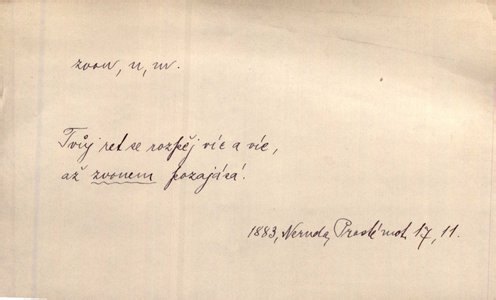 zvon, u, m.
Tvůj ret se rozpěj víc a víc,
až zvonem pozajásá!
1883, Neruda, Prosté mot. 17, 11.